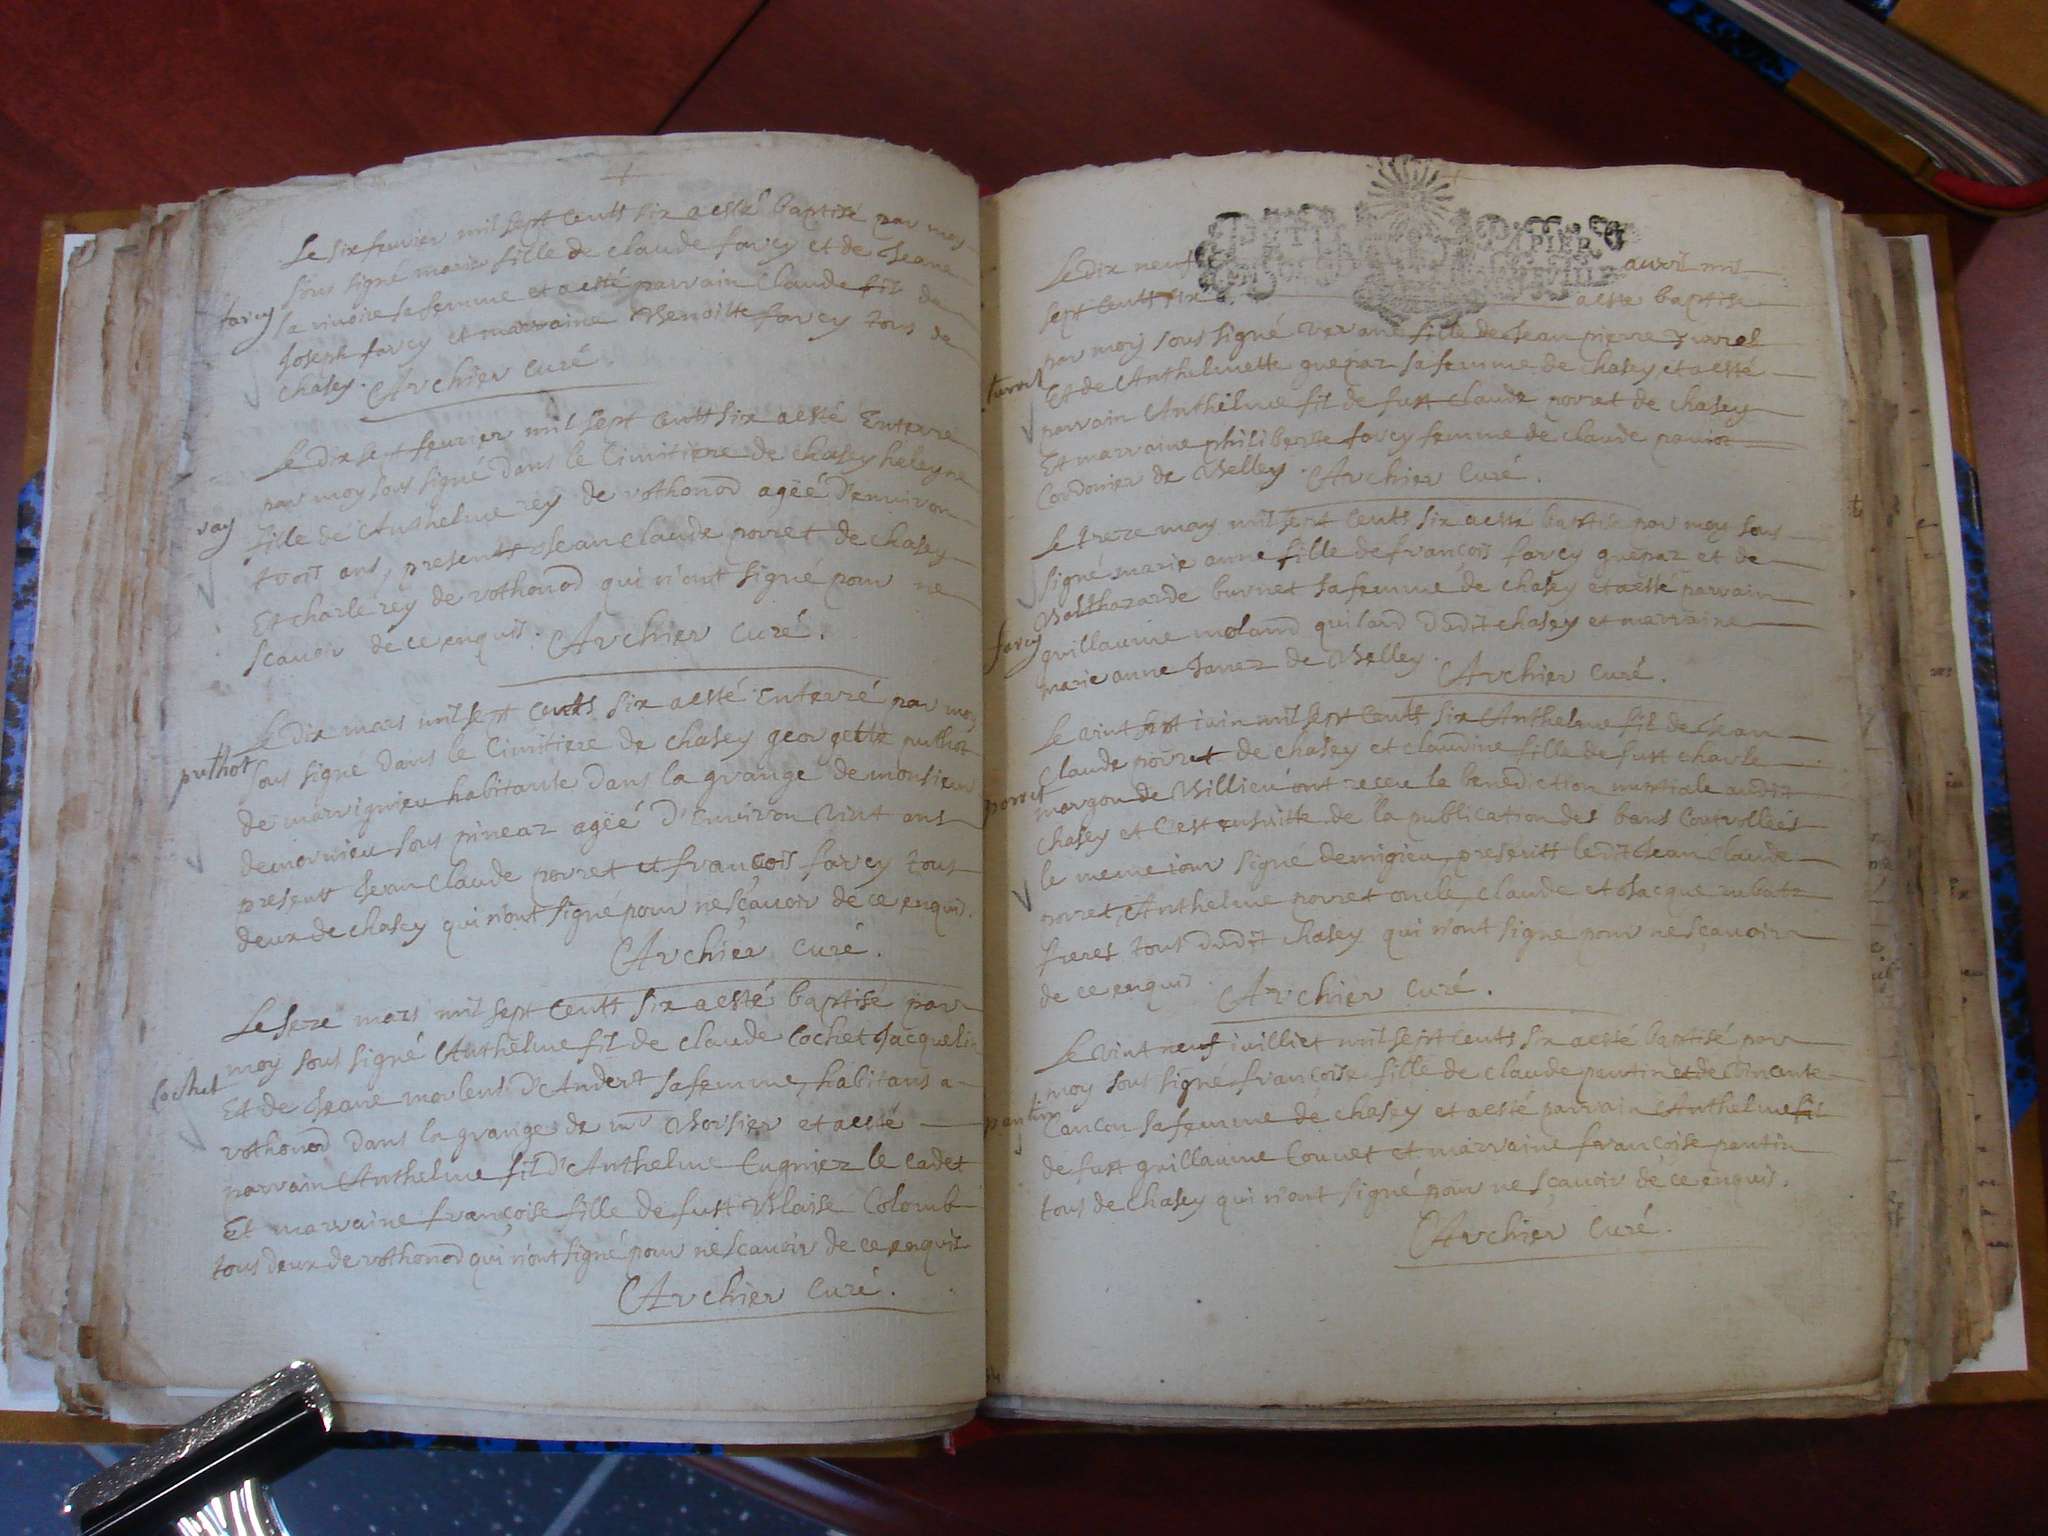 Le six feuvier mil sept centts six a esté baptisé par moy
sous signé marie fille de claude farcy et de Jeane
farcy
la rivoire sa femme et a esté parrain Claude fil de
Joseph farcy et marraine Benoitte farcy tous de
chasey. Archier curé
Le dix sept feuvrier mil sept centts six a esté Enterré
par moy sous signé dans le Cimitiere de chasey heleyne
rey
fille de Anthelme rey de rothonod agéé d'environ
trois ans, presentt Jean claude porret de chasey
Et charle rey de rothonod qui n'ont signé pour ne
scavoir de ce enquis. Archier curé.
Le dix mars mil sept centts six a esté Enterré par moy
puthot
sous signé dans le Cimitiere de chasey georgette puthot
de marrignieu habitante dans la grange de monsieur
demornieu sous pineaz agéé d'Environ vint ans
presentt Jean Claude porret et françois farcy tous
deux de chasey qui n'ont signé pour ne sçavoir de ce enquis.
Archier curé.
Le seze mars mil sept centts six a esté baptisé par
moy sous signé Anthelme fil de claude Cochet Jacquelin
Cochet
Et de Jeane morlens d'Andert sa femme, habitans a
rothonod dans la grange de mr Borsier et a esté
parrain Anthelme fil d'Anthelme Cugniez le cadet
Et marraine françoise fille de fust Blaise Colomb
tous deux de rothonod qui n'ont signé pour ne scavoir de ce enquis
Archier curé.
PAPIER
Le dix neuf avril mil
sept centts six a esté baptisé
par moy sous signé verane fille de Jean pierre turrel
turrel
Et de Anthelmette guepaz sa femme de chasey, et a esté
parrain Anthelme fil de fust claude porret de chasey
Et marraine philiberte farcy femme de claude paviot
Cordonier de Belley. Archier curé.
Le treze may mil sept centts six a esté baptisé par moy sous
signé marie anne fille de françois farcy guepaz et de
Balthazarde burnet sa femme de chasey et a esté parrain
farcy
guillaume moland quilard dudit chasey et marraine
marie anne Janez de Belley. Archier curé.
Le vint sept iuin mil sept centts six Anthelme fil de Jean
Claude porret de chasey et claudine fille de fust charle
porret
margon de Billieu ont receu la benediction nuptiale audit
chasey et C'est ensuitte de la publication des bans Controlleés
le meme iour signé demigieu, presentt ledit Jean Claude
porret, Anthelme porret oncle, Claude et Jacque rubatz
freres tous dudit chasey qui n'ont signé pour ne sçavoir
de ce enquis. Archier curé.
Le vint neuf iuilliet mil sept cents six a esté baptisé par
moy sous signé françoise fille de claude pantin et de Vincente
pantin
Cancon sa femme de chasey et a esté parrain Anthelme fil
de fust guillaume Convet et marraine françoise pantin
tous de chasey qui n'ont signé pour ne sçavoir de ce enquis.
Archier curé.